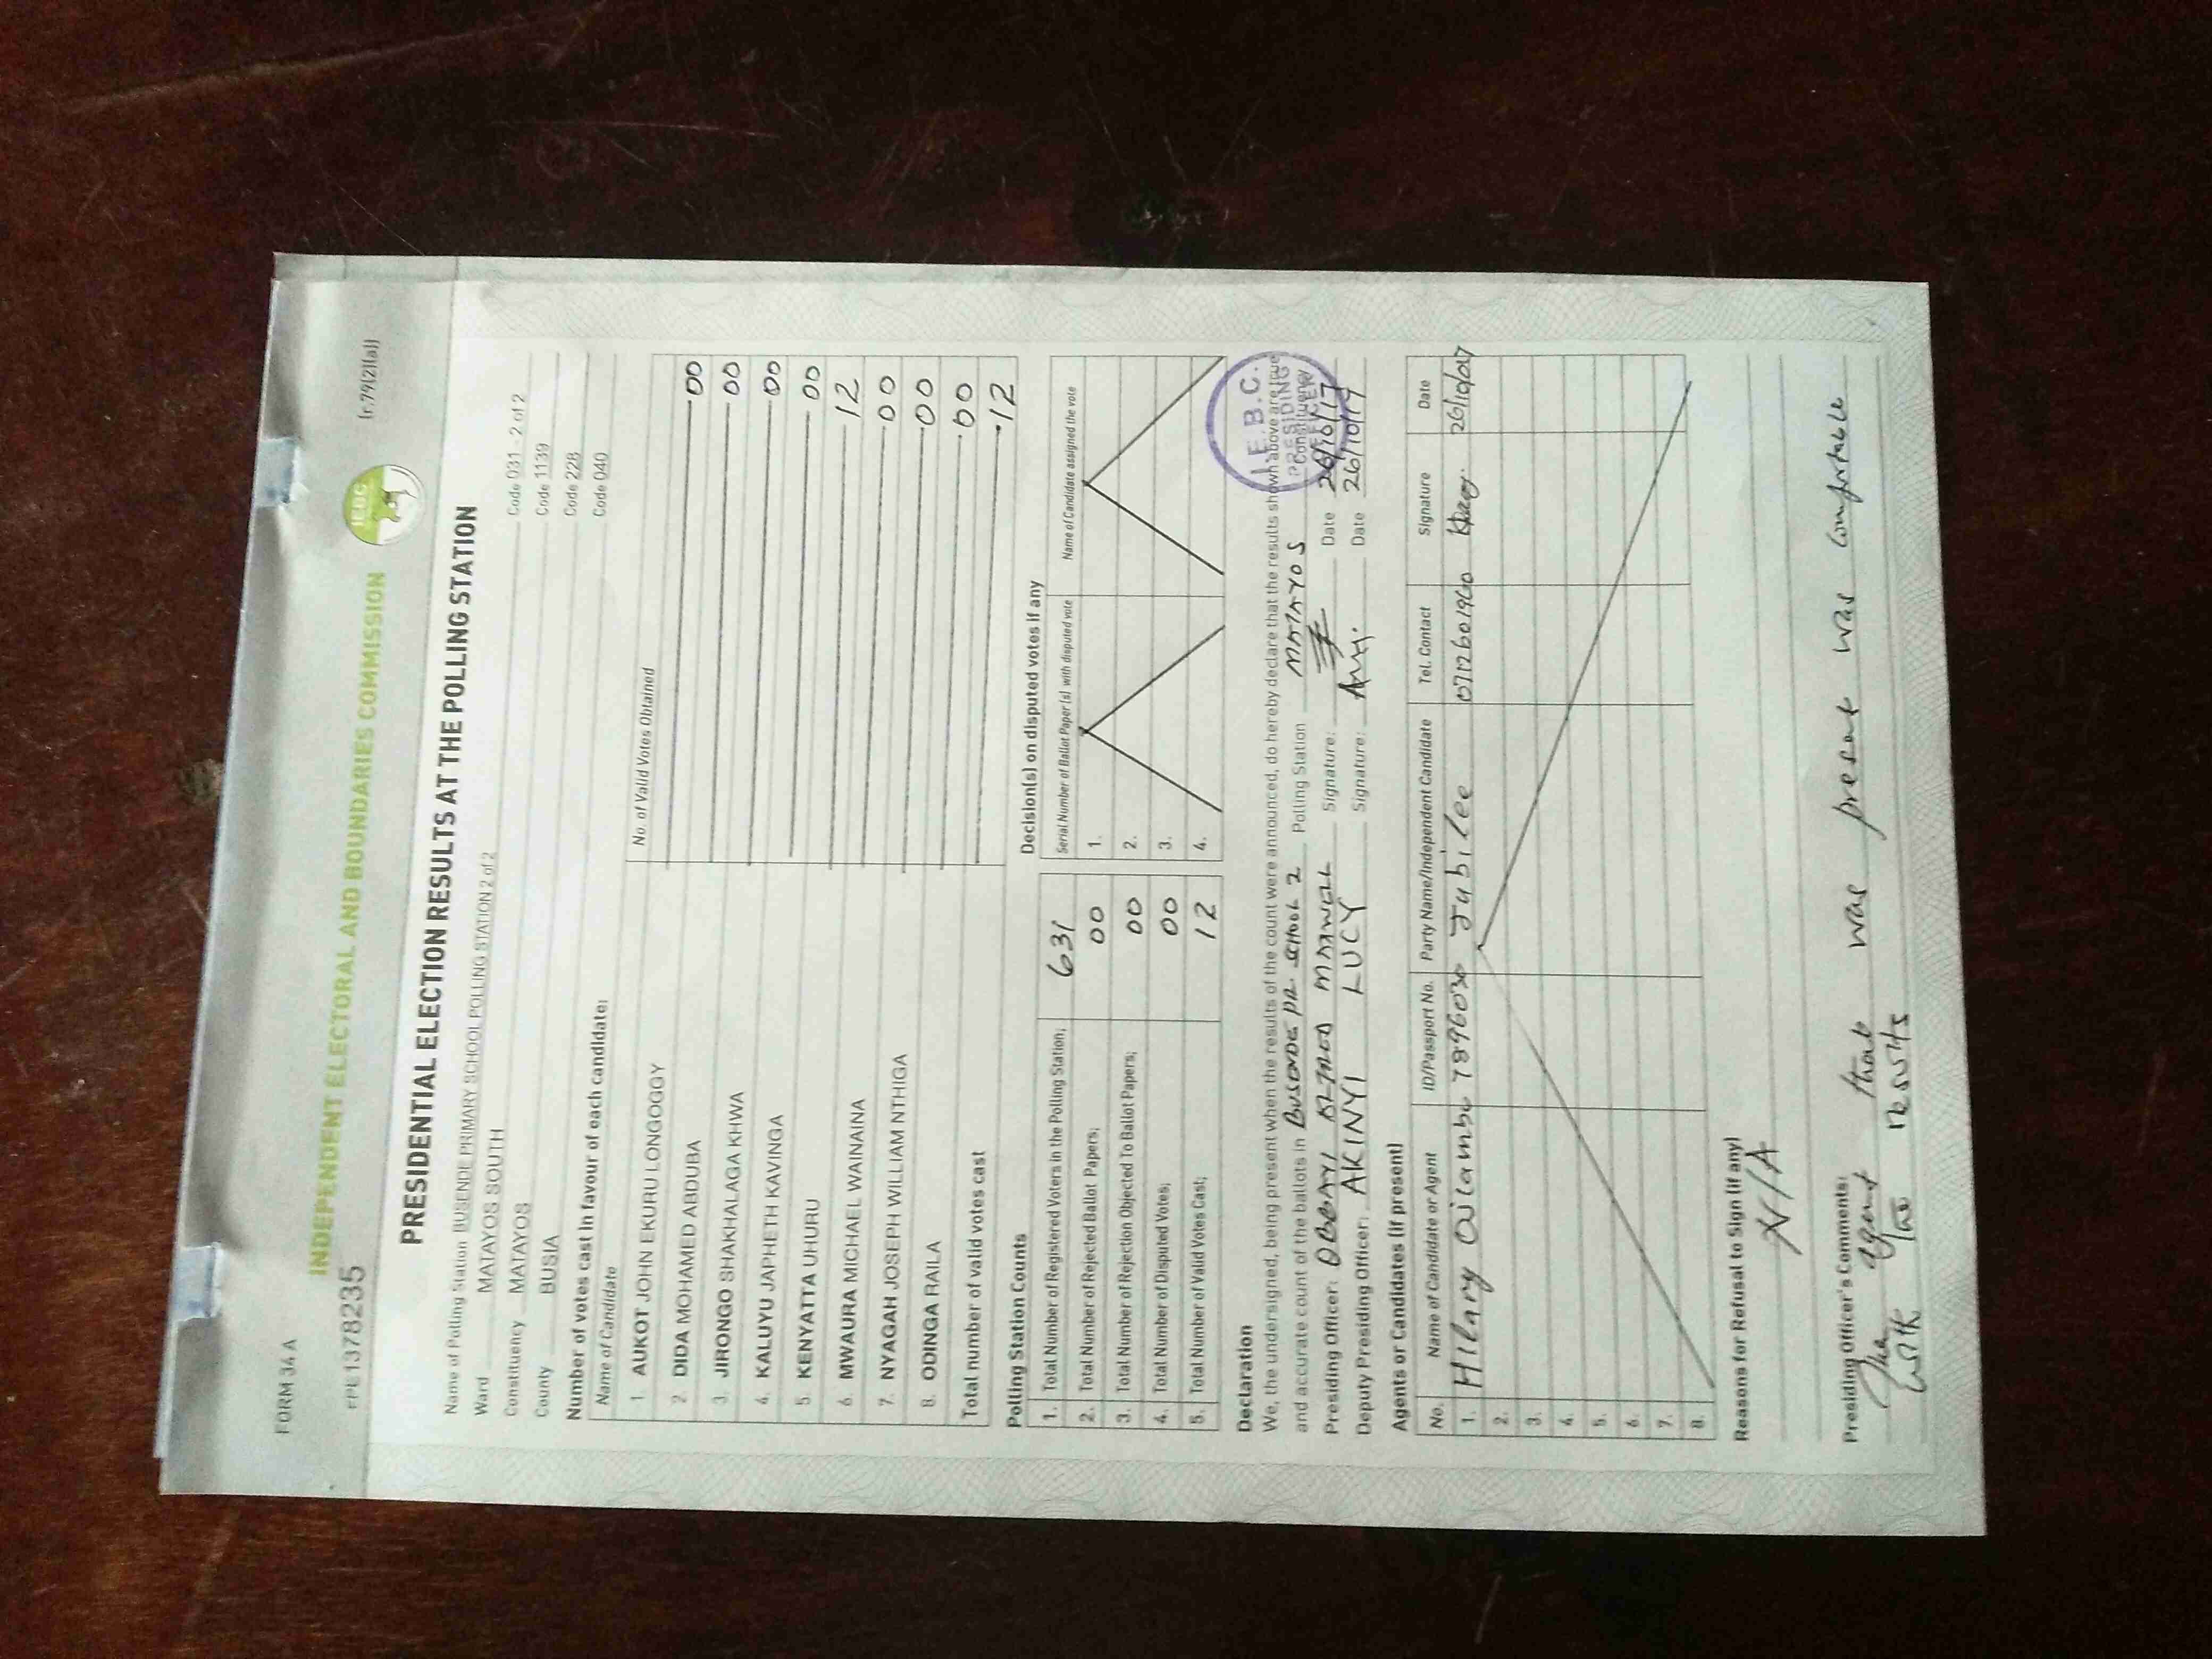 FORM 34 A
[r.79(2)(a)]
INDEPENDENT ELECTORAL AND BOUNDARIES COMMISSION
IEBC
PRE1378235
PRESIDENTIAL ELECTION RESULTS AT THE POLLING STATION
Name of Polling Station BUSENDE PRIMARY SCHOOL POLLING STATION 2 of 2 Code 031 - 2 of 2
Ward MATAYOS SOUTH Code 1139
Constituency MATAYOS Code 228
County BUSIA Code 040
Number of votes cast in favour of each candidate:
Name of Candidate No. of Valid Votes Obtained
1. AUKOT JOHN EKURU LONGOGGY 00
2. DIDA MOHAMED ABDUBA 00
3. JIRONGO SHAKHALAGA KHWA 00
4. KALUYU JAPHETH KAVINGA 00
5. KENYATTA UHURU 12
6. MWAURA MICHAEL WAINAINA 00
7. NYAGAH JOSEPH WILLIAM NTHIGA 00
8. ODINGA RAILA 00
Total number of valid votes cast 12
Polling Station Counts
1. Total Number of Registered Voters in the Polling Station; 631
2. Total Number of Rejected Ballot Papers; 00
3. Total Number of Rejection Objected To Ballot Papers; 00
4. Total Number of Disputed Votes; 00
5. Total Number of Valid Votes Cast; 12
Decision(s) on disputed votes if any
Serial Number of Ballot Paper(s) with disputed vote Name of Candidate assigned the vote
1.
2.
3.
4.
Declaration
We, the undersigned, being present when the results of the count were announced, do hereby declare that the results shown above are true
and accurate count of the ballots in BUSENDE PR. SCHOOL 2 Polling Station MATAYOS Constituency
Presiding Officer: Signature: Date 26/10/17
Deputy Presiding Officer: AKINYI LUCY Signature: Date 26/10/17
I.E.B.C.
PRESIDING
OFFICER
Agents or Candidates (if present)
No. Name of Candidate or Agent ID/Passport No. Party Name/Independent Candidate Tel. Contact Signature Date
1. Hilary 7896030 Jubilee 0712601960 26/10/017
2.
3.
4.
5.
6.
7.
8.
Reasons for Refusal to Sign (if any)
N/A
Presiding Officer's Comments:
The agent that was present was comfortable
with the results